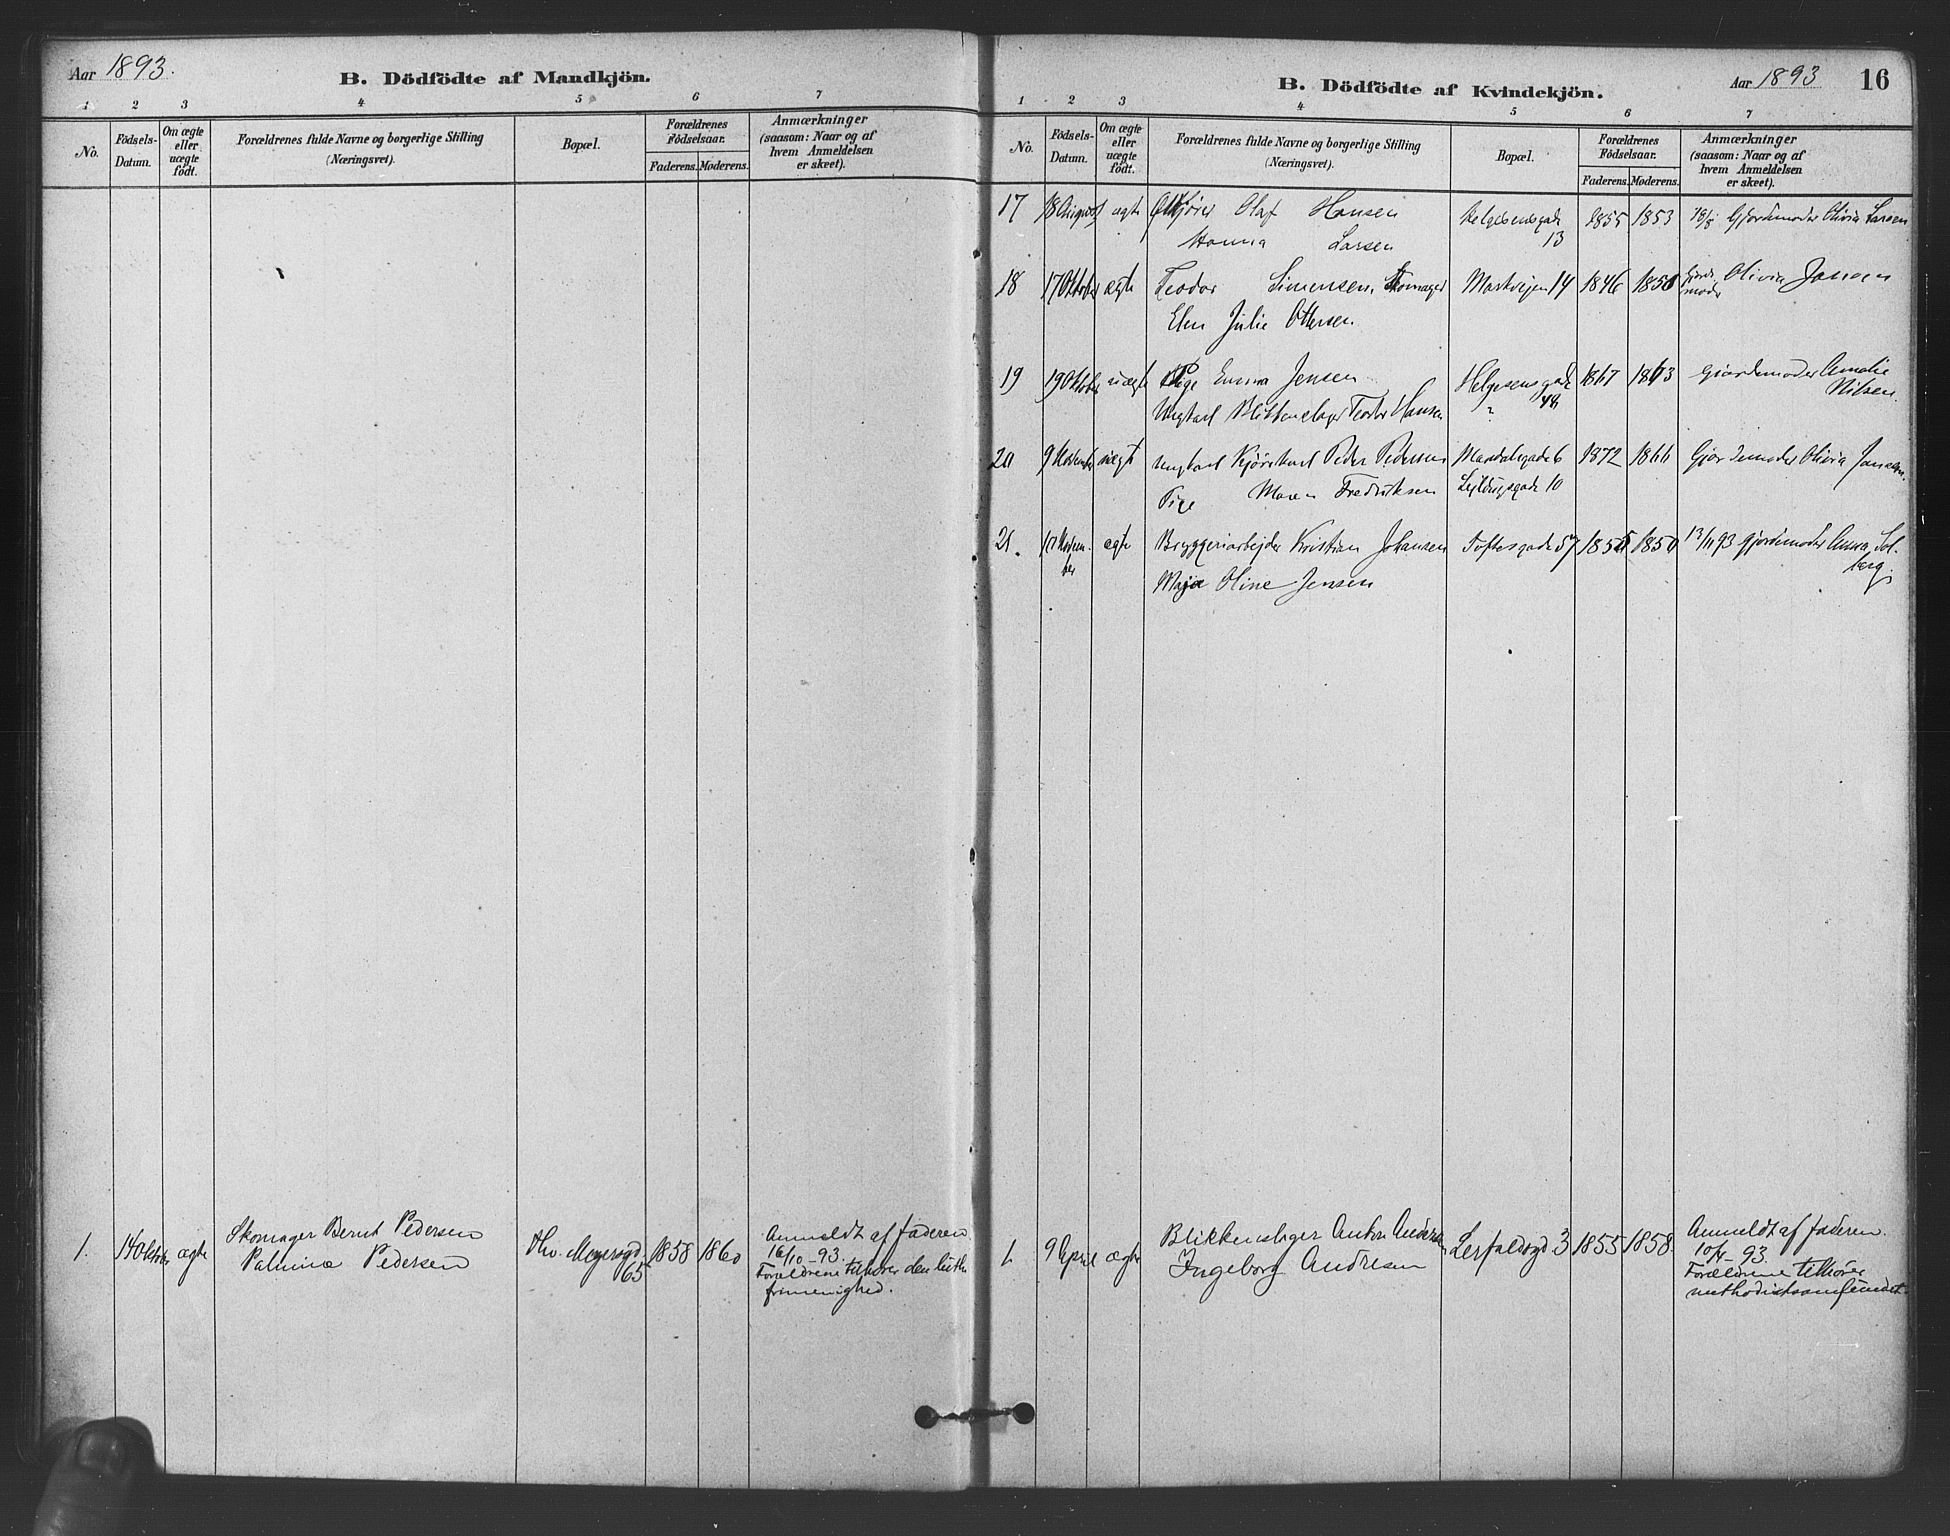 Aar 1893.
B. Dödfödte af Mandkjön.
1 2 3 4 5 6 7
No.
Födsels-
Datum.
Om ægte
eller
uægte
födt.
Forældrenes fulde Navne og borgerlige Stilling
(Næringsvei).
Bopæl.
Forældrenes
Födselsaar.
Faderens. Moderens.
Anmærkninger
(saasom: Naar og af
hvem Anmeldelsen
er skeet).
1. 14 Oktober ægte
Skomager Bernt Pedersen
Palmine Pedersen
Thv. Meyersgd
65
1858 1860
Anmeldt af faderen
16/10-93.
Forældrene tilhører den luth
frimenighed.
B. Dödfödte af Kvindekjön.
Aar 1893 16
1 2 3 4 5 6 7
No.
Födsels-
Datum.
Om ægte
eller
uægte
födt.
Forældrenes fulde Navne og borgerlige Stilling
(Næringsvei).
Bopæl.
Forældrenes
Födselsaar.
Faderens. Moderens.
Anmærkninger
(saasom: Naar og af
hvem Anmeldelsen
er skeet).
17 18 August ægte Olaf Hansen Helgesensgade 1855 1853 18/8 Gjordemoder Olivia Larsen
Hanna Larsen 13
18 17 Oktober ægte Teodor Simensen, Skomager Markvejen 14 1846 1850 Olivia Jansen
Elen Julie Ottersen.
19 19 Oktober uægte Pige Emma Jensen Helgesensgade 1867 1873 Gjordemoder Amalie
Ungkarl Blikkenslager Teodor Hansen " 48 Nilsen.
20 9 November uægte Ungkarl Kjörekarl Peder Pedersen Mandalsgade 6 1872 1866 Gjordemoder Olivia Jansen.
Pige Maren Fredriksen 10
21. 12 Novem- ægte Bryggeriarbejder Kristian Johansen Toftesgade 57 1855 1850 13/11 93 Gjordemoder Anna Sol-
ber Maja Oline Jensen berg.
1. 9 April ægte
Blikkenslager Anton Andersen
Ingeborg Andresen
Lerfaldsgd 3 1855 1858.
Anmeldt af faderen.
10/4-93.
Forældrene tilhører
methodistsamfundet.